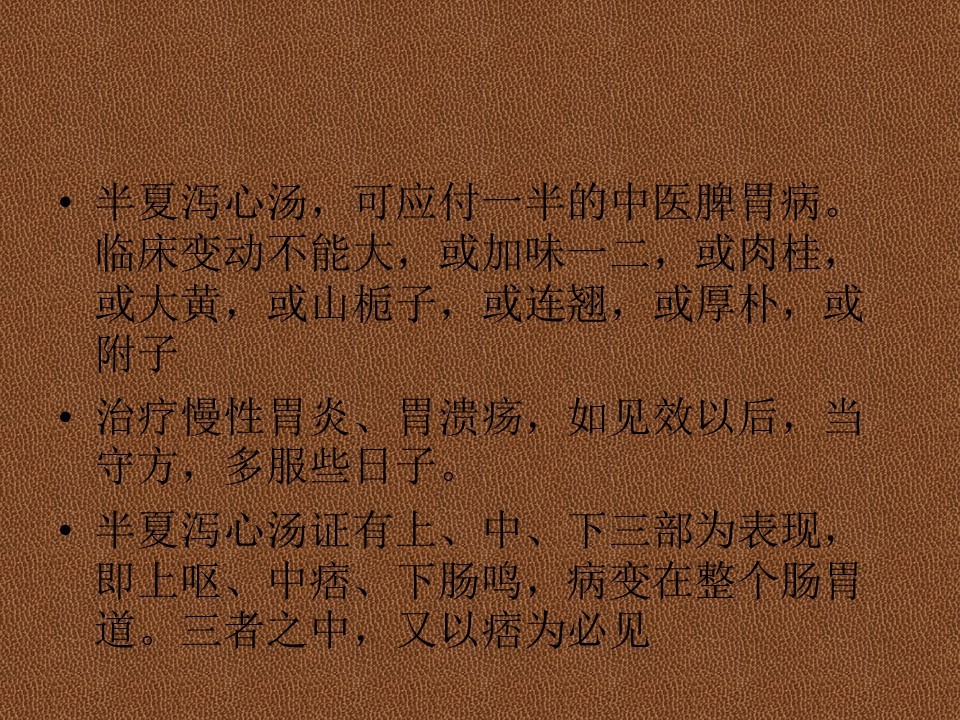 • 半夏泻心汤，可应付一半的中医脾胃病。
临床变动不能大，或加味一二，或肉桂，
或大黄，或山栀子，或连翘，或厚朴，或
附子
• 治疗慢性胃炎、胃溃疡，如见效以后，当
守方，多服些日子。
• 半夏泻心汤证有上、中、下三部为表现，
即上呕、中痞、下肠鸣，病变在整个肠胃
道。三者之中，又以痞为必见